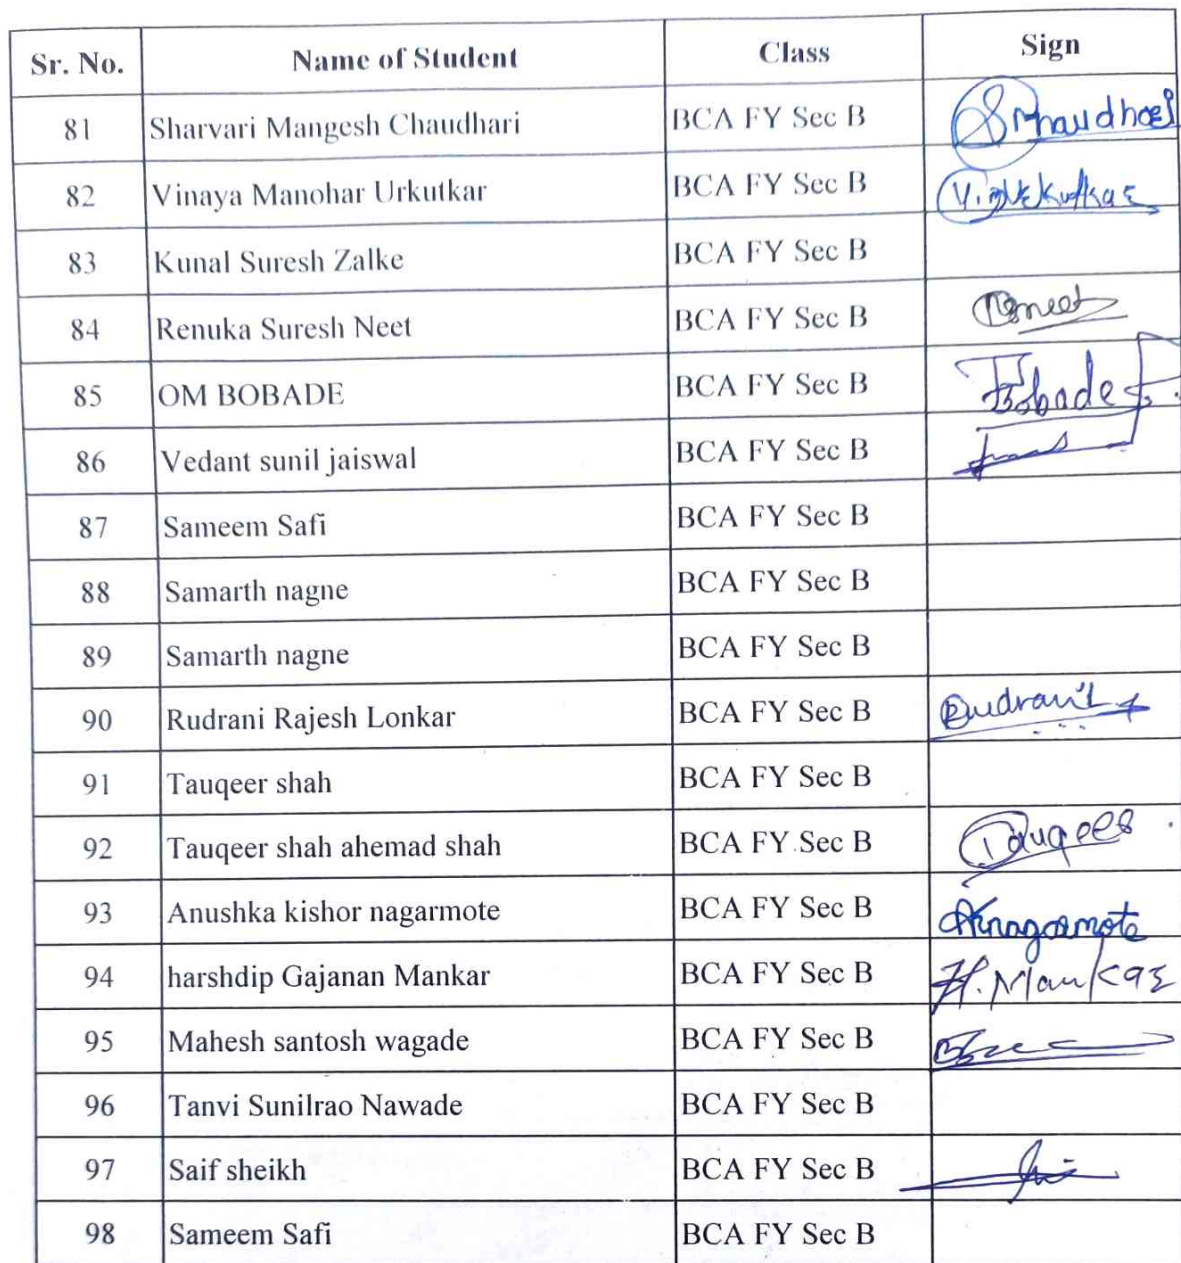 Sr. No. Name of Student Class Sign
81 Sharvari Mangesh Chaudhari BCA FY Sec B
82 Vinaya Manohar Urkutkar BCA FY Sec B
83 Kunal Suresh Zalke BCA FY Sec B
84 Renuka Suresh Neet BCA FY Sec B Rneet
85 OM BOBADE BCA FY Sec B Bobade
86 Vedant sunil jaiswal BCA FY Sec B
87 Sameem Safi BCA FY Sec B
88 Samarth nagne BCA FY Sec B
89 Samarth nagne BCA FY Sec B
90 Rudrani Rajesh Lonkar BCA FY Sec B Rudrani
91 Tauqeer shah BCA FY Sec B
92 Tauqeer shah ahemad shah BCA FY Sec B Tauqeer
93 Anushka kishor nagarmote BCA FY Sec B AKnagarmote
94 harshdip Gajanan Mankar BCA FY Sec B H. Mankar
95 Mahesh santosh wagade BCA FY Sec B
96 Tanvi Sunilrao Nawade BCA FY Sec B
97 Saif sheikh BCA FY Sec B
98 Sameem Safi BCA FY Sec B